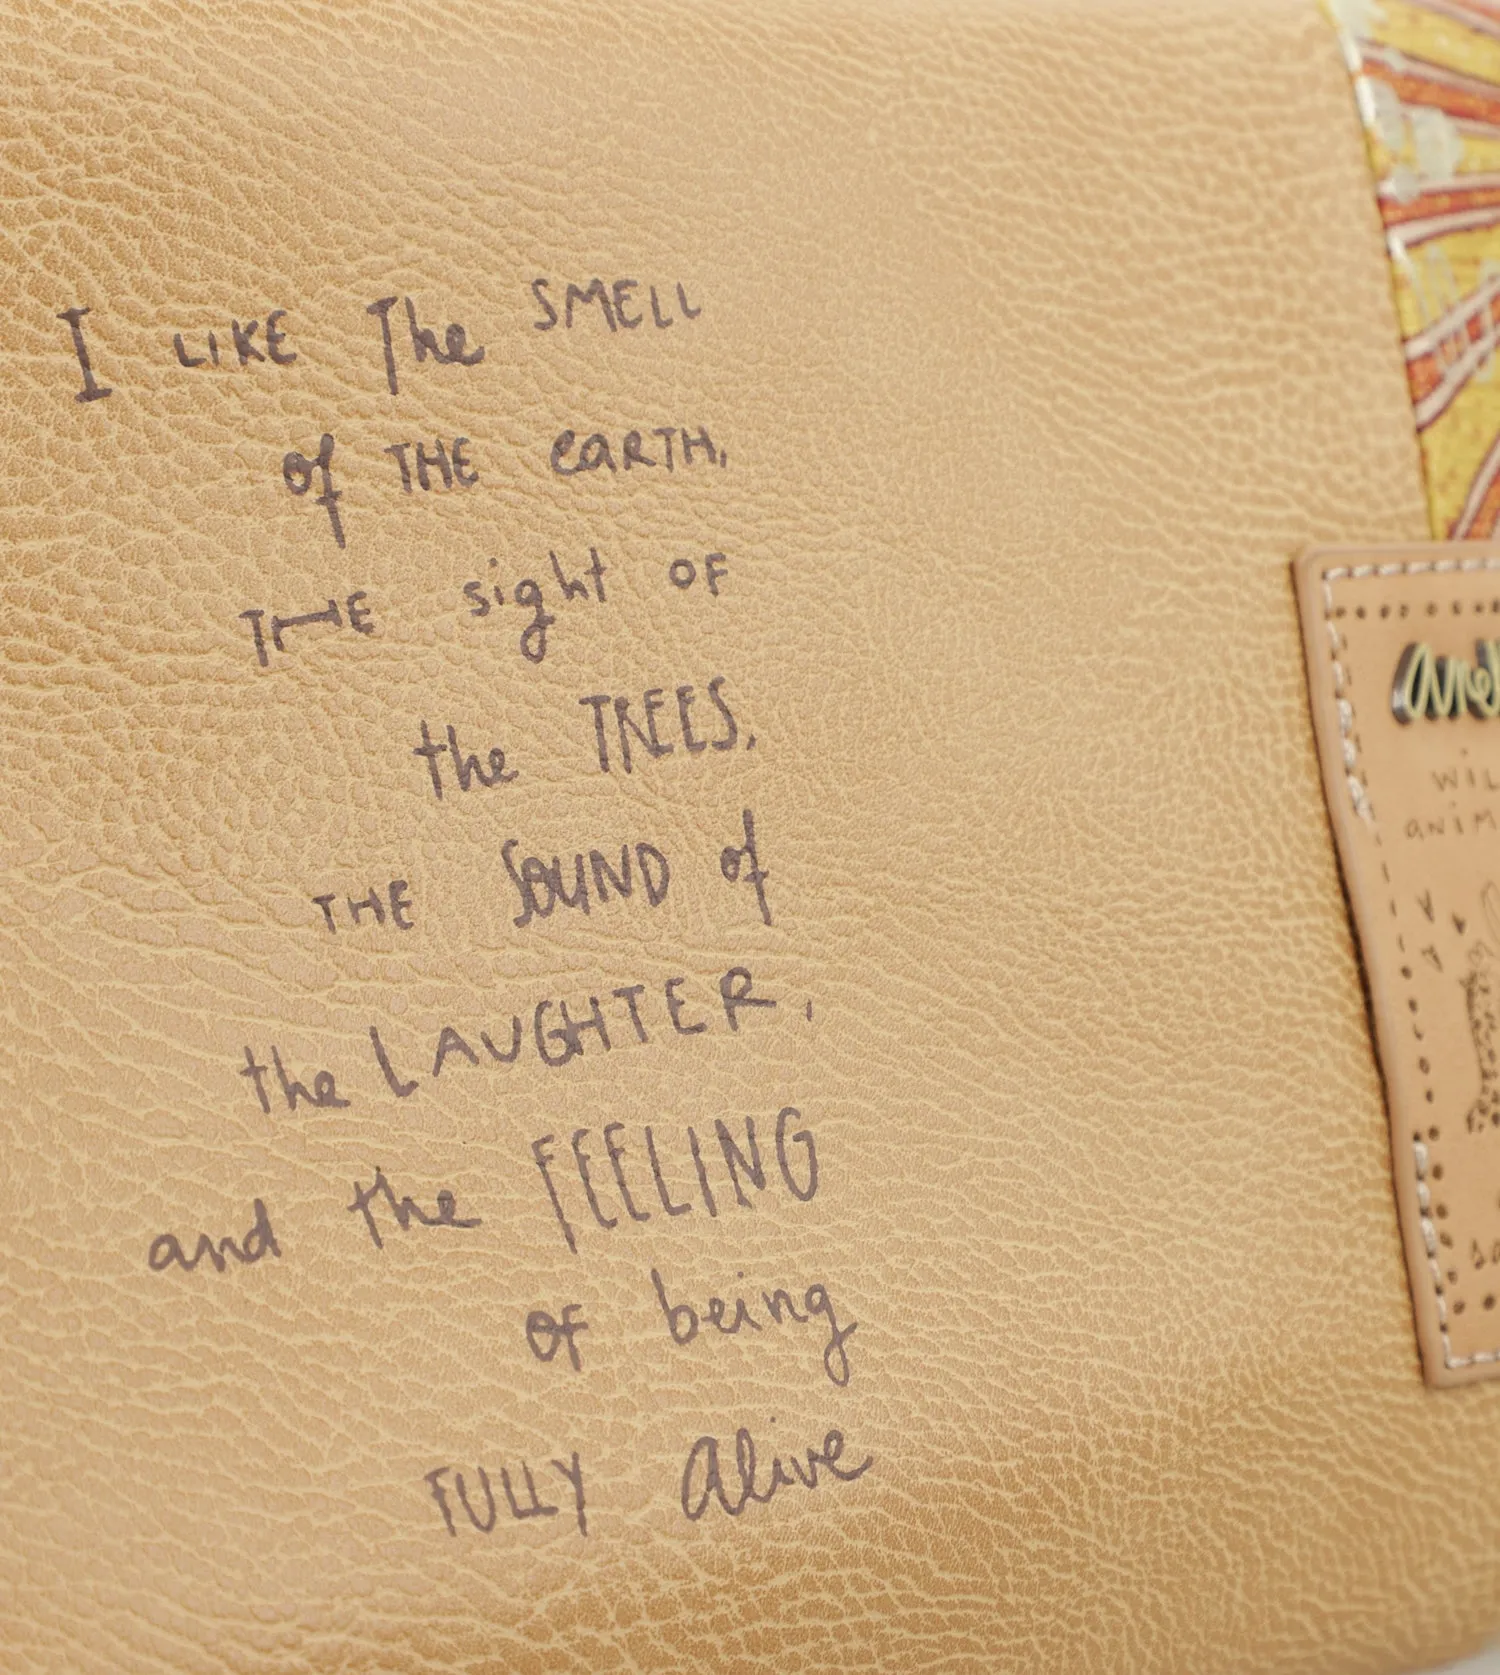 I LIKE The SMELL
of THE eaRTH,
THE sight OF
the TREES,
THE SOUND of
the LAUGHTER,
and the FEELING
OF being
FULLY Alive